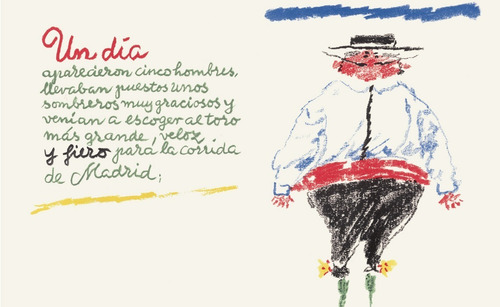 Un día
aparecieron cinco hombres,
llevaban puestos unos
sombreros muy graciosos y
venían a escoger al toro
más grande, veloz
y fiero para la corrida
de Madrid;